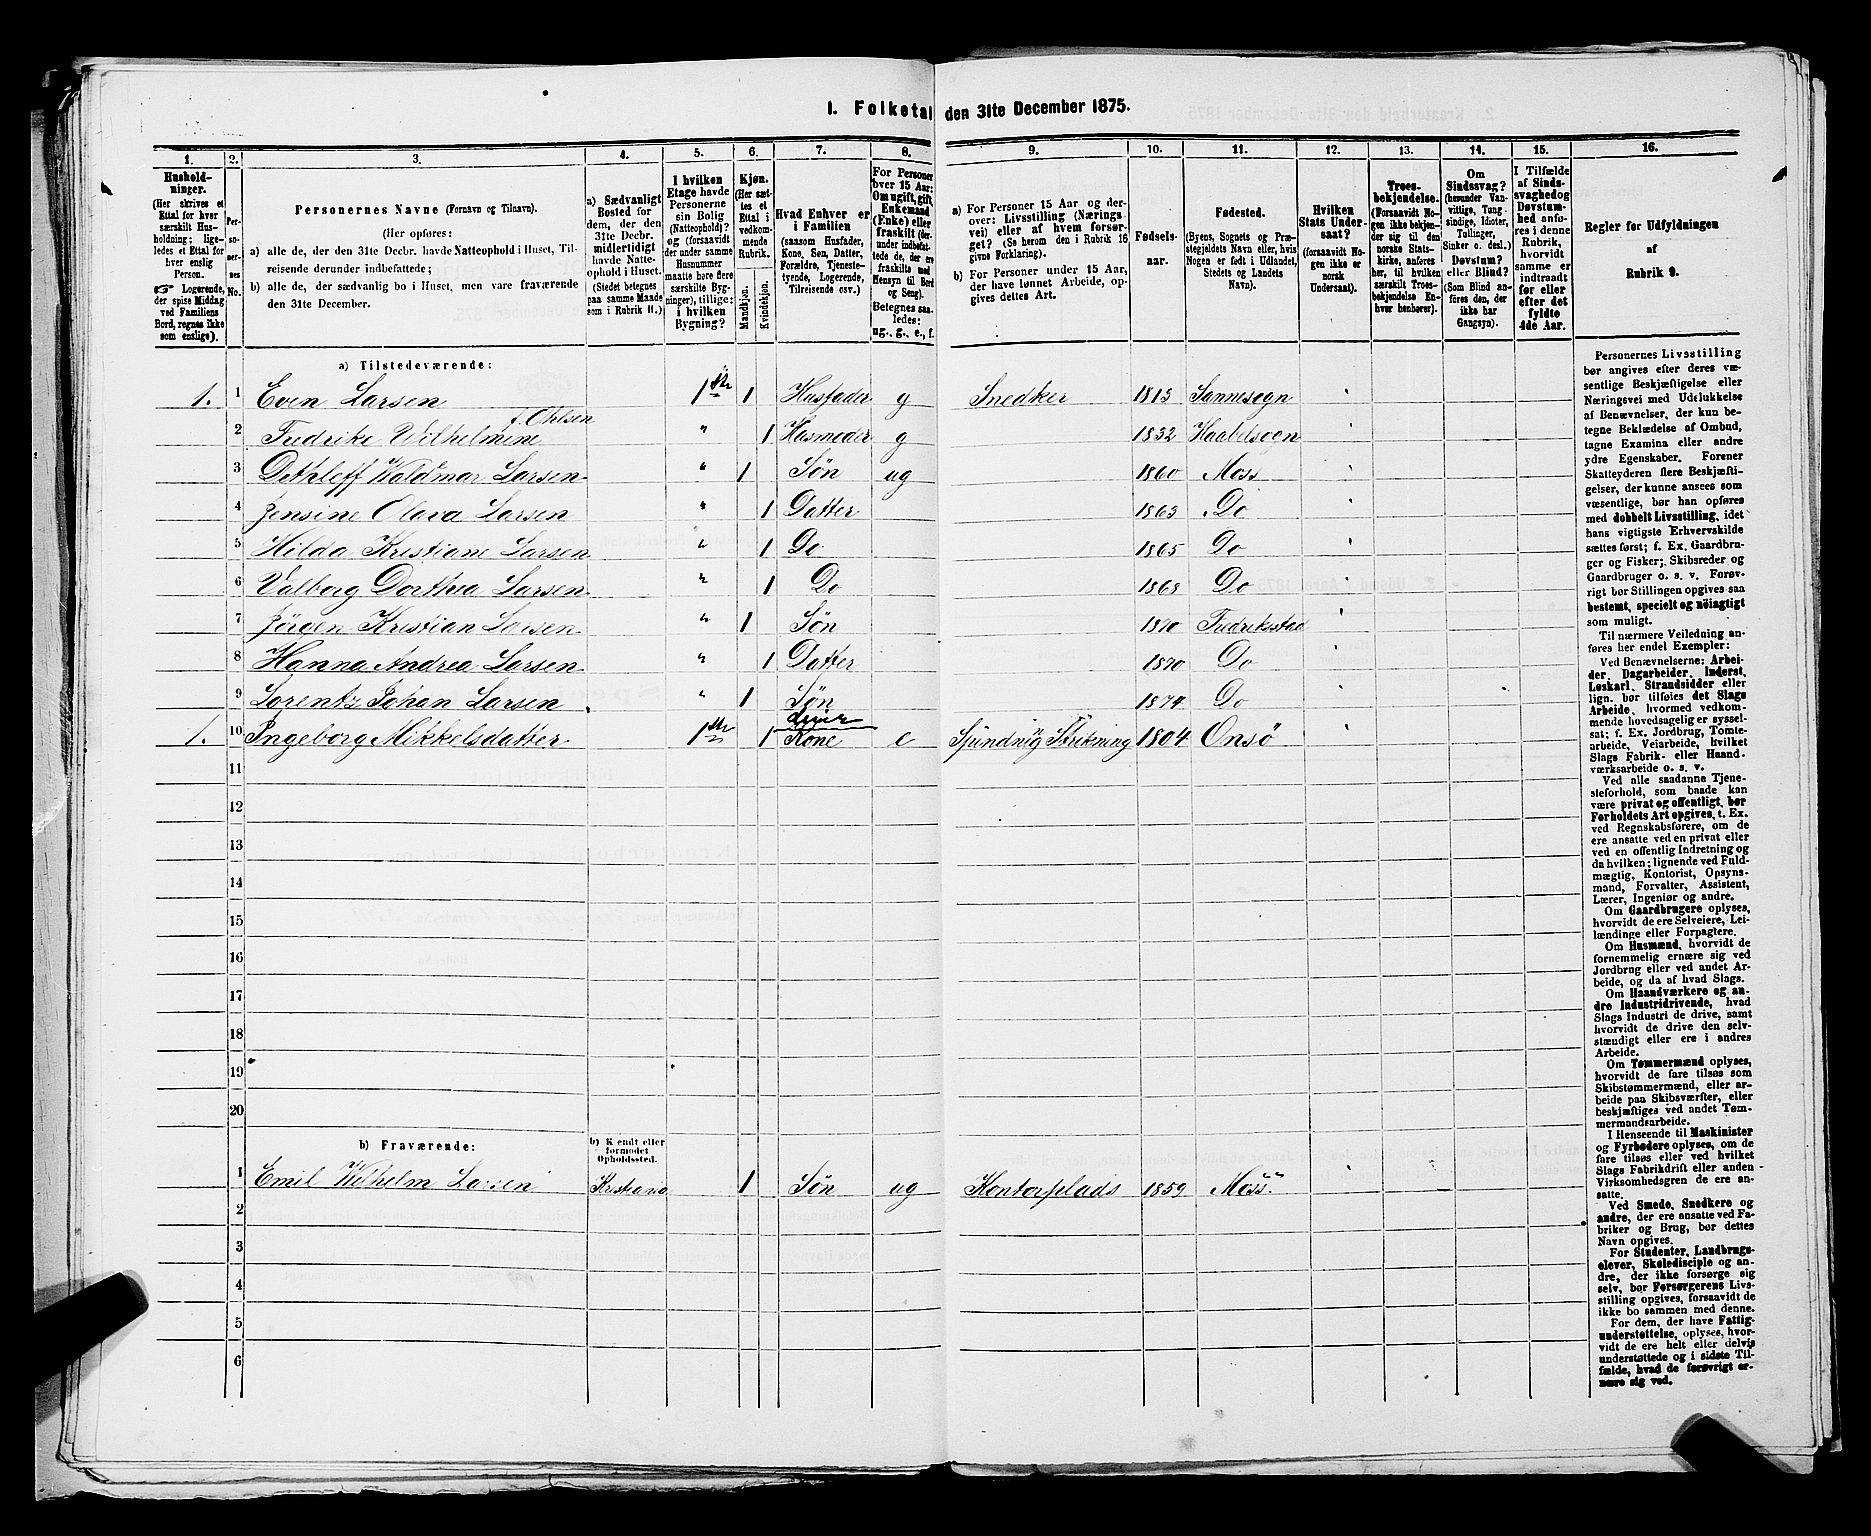 1. Folketal den 31te December 1875.
1. 2. 3. 4. 5. 6. 7. 8. 9. 10. 11. 12. 13. 14. 15. 16.
Hushold-
ninger.
(Her skrives et
Ettal for hver
særskilt Hus-
holdning; lige-
ledes et Ettal for
hver enslig
Person.
☞ Logerende,
der spise Middag
ved Familiens
Bord, regnes ikke
som enslige).
Per-
so-
ner-
nes
No.
Personernes Navne (Fornavn og Tilnavn).
(Her opføres:
a) alle de, der den 31te Decbr. havde Natteophold i Huset, Til-
reisende derunder indbefattede;
b) alle de, der sædvanlig bo i Huset, men vare fraværende
den 31te December.
a) Sædvanligt
Bosted for
dem, der den
31te Decbr.
midlertidigt
havde Natte-
ophold i Huset.
(Stedet betegnes
paa samme Maade
som i Rubrik 11.)
I hvilken
Etage havde
Personerne
sin Bolig
(Natteophold)?
og (forsaavidt
der under samme
Husnummer
maatte bære flere
særskilte Byg-
ninger), tillige:
i hvilken
Bygning?
Kjøn.
(Her sæt-
tes et
Ettal i
vedkom-
mende
Rubrik.
Mandkjøn.
Kvindekjøn.
Hvad Enhver er
i Familien
(saasom Husfader,
Kone, Søn, Datter,
Forældre, Tjeneste-
tyende, Logerende,
Tilreisende osv.)
For Personer
over 15 Aar:
Om ugift, gift,
Enkemand
(Enke) eller
fraskilt (der-
under indbefat-
tede de, der ere
fraskilte med
Hensyn til Bord
og Seng).
Betegnes saa-
ledes:
ug., g., e., f.
a) For Personer 15 Aar og der-
over: Livsstilling (Nærings-
vei) eller af hvem forsør-
get? (Se herom den i Rubrik 16
givne Forklaring).
b) For Personer under 15 Aar,
der have lønnet Arbeide, op-
gives dettes Art.
Fødsels-
aar.
Fødested.
(Byens, Sognets og Præ-
stegjeldets Navn eller, hvis
Nogen er født i Udlandet,
Stedets og Landets
Navn).
Hvilken
Stats Under-
saat?
(forsaavidt No-
gen ikke er
norsk
Undersaat).
Troes-
bekjendelse.
(Forsaavidt No-
gen ikke bekjen-
der sig til den
norske Stats-
kirke, anføres
her, til hvilken
særskilt Troes-
bekjendelse En-
hver henhører).
Om
Sindssvag?
(herunder Van-
vittige, Tung-
sindige, Idioter,
Tullinger,
Sinker o. desl.)
Døvstum?
eller Blind?
(Som Blind an-
føres den, der
ikke har
Gangsyn).
I Tilfælde
af Sinds-
svaghed og
Døvstum-
hed anfø-
res i denne
Rubrik,
hvorvidt
samme er
indtraadt
før eller
efter det
fyldte
4de Aar.
Regler for Udfyldningen
af
Rubrik 9.
a) Tilstedeværende:
1. 1 Even Larsen 1ste 1 Husfader g Snedker 1813 Sannesogn
f. Ohlsen
2 Fredrike Wilhelmine " 1 Husmoder g 1832 Haabelsogn
3 Dethleff Waldmar Larsen " 1 Søn ug 1860 Moss
4 Jensine Olava Larsen " 1 Datter 1863 Do
5 Hilda Kristiane Larsen " 1 Do 1865 Do
6 Valborg Dorthea Larsen " 1 Do 1868 Do
7 Jörgen Kristian Larsen " 1 Søn 1870 Fredriksstad
8 Hanna Andrea Larsen " 1 Datter 1870 Do
9 Lorentz Johan Larsen " 1 Søn 1874 Do
1. 10 Ingeborg Mikkelsdatter 1ste 1 Kone e Spinding Strikning 1804 Onsö
11
12
13
14
15
16
17
18
19
20
b) Fraværende:
b) Kendt eller
formodet
Opholdssted.
1 Emil Wilhelm Larsen Kristiana 1 Søn ug Kontorplads 1859 Moss
2
3
4
5
6
Personernes Livsstilling
bør angives efter deres væ-
sentlige Beskjæftigelse eller
Næringsvei med Udelukkelse
af Benævnelser, der kun be-
tegne Beklædelse af Ombud,
tagne Examina eller andre
ydre Egenskaber. Forener
Skatteyderen flere Beskjæfti-
gelser, der kunne ansees som
væsentlige, bør han opføres
med dobbelt Livsstilling, idet
hans vigtigste Erhvervskilde
sættes først; f. Ex. Gaardbru-
ger og Fisker; Skibsreder og
Gaardbruger o. s. v. Forøv-
rigt bør Stillingen opgives saa
bestemt, specielt og nöiagtigt
som muligt.
Til nærmere Veiledning an-
føres her endel Exempler:
Ved Benævnelserne: Arbei-
der, Dagarbeider, Inderst,
Løskarl, Strandsidder eller
lign. bør tilføies det Slags
Arbeide, hvormed vedkom-
mende hovedsagelig er syssel-
sat; f. Ex. Jordbrug, Tomte-
arbeide, Veiarbeide, hvilket
Slags Fabrik- eller Haand-
værksarbeide o. s. v.
Ved alle saadanne Tjene-
steforhold, som baade kan
være privat og offentligt, bør
Forholdets Art opgives, t. Ex.
ved Regnskabsførere, om de
ere ansatte ved en privat eller
ved en offentlig Indretning og
da hvilken; lignende ved Fuld-
mægtig, Kontorist, Opsyns-
mand, Forvalter, Assistent,
Lærer, Ingeniør og andre.
Om Gaardbrugere oplyses,
hvorvidt de ere Selveiere, Lei-
lændinge eller Forpagtere.
Om Husmænd, hvorvidt de
fornemmelig ernære sig ved
Jordbrug eller ved andet Ar-
beide, og da af hvad Slags.
Om Haandværkere og an-
dre Industridrivende, hvad
Slags Industri de drive, samt
hvorvidt de drive den selv-
stændigt eller ere i andres
Arbeide.
Om Tømmermænd oplyses,
hvorvidt de fare tilsøs som
Skibstømmermænd, eller ar-
beide paa Skibsværfter, eller
beskjæftiges ved andet Tøm-
mermandsarbeide.
I Henseende til Maskinister
og Fyrbødere oplyses, om de
fare tilsøs eller ved hvilket
Slags Fabrikdrift eller anden
Virksomhedsgren de ere an-
satte.
Ved Smede, Snedkere og
andre, der ere ansatte ved Fa-
briker og Brug, bør dettes
Navn opgives.
For Studenter, Landbrugs-
elever, Skoledisciple og an-
dre, der ikke forsørge sig
selv, bør Forsørgerens Livs-
stilling opgives, forsaavidt de
ikke bo sammen med denne.
For dem, der have Fattig-
understøttelse, oplyses, hvor-
vidt de ere helt eller delvis
understøttede og i sidste Til-
fælde, hvad de forøvrigt er-
nære sig ved.